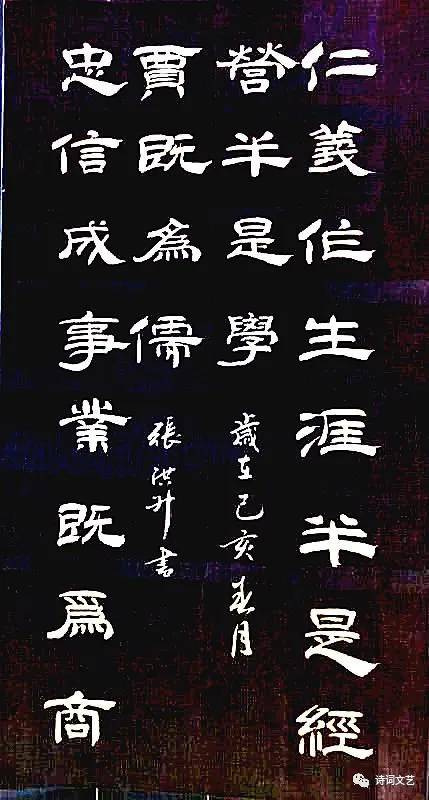 仁義作生涯半是經
營半是學
歲在己亥春月
忠信成事業既爲商
賈既為儒
張洪升書
诗词文艺